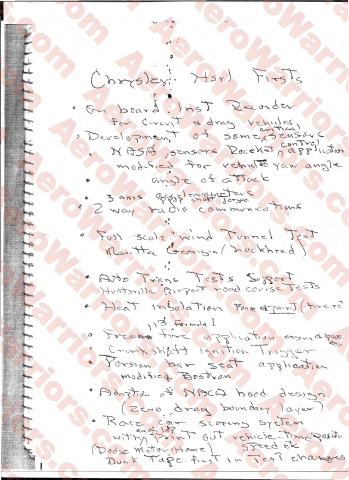 Chrysler: Hsvl Firsts
• On board Inst Recorder
For Circuit & drag vehicles
• Development of some sensors
critical
• NASA sensors Rocket application
control
modified for vehicle yaw angle
• angle of attack
• 3 axis accelerometers
shaft torque
• 2 way radio communications
• Full scale wind Tunnel Test
Marietta Georgia/Lockheed)
• Auto Trans Tests Support
Huntsville Airport road course Tests
• Heat Insulation Foam & paint (
113 Formula I
• application
• Crankshaft Ignition Trigger
• Torsion bar seat application
modified Bostrom
• Adoption of NACA hood design
(zero drag boundary layer)
• Race car scoring system
each lap
with print out vehicle-time position
speed etc
(Dodge Motor Home)
Duck Tape first in Test changes
1
AeroWarriors.com